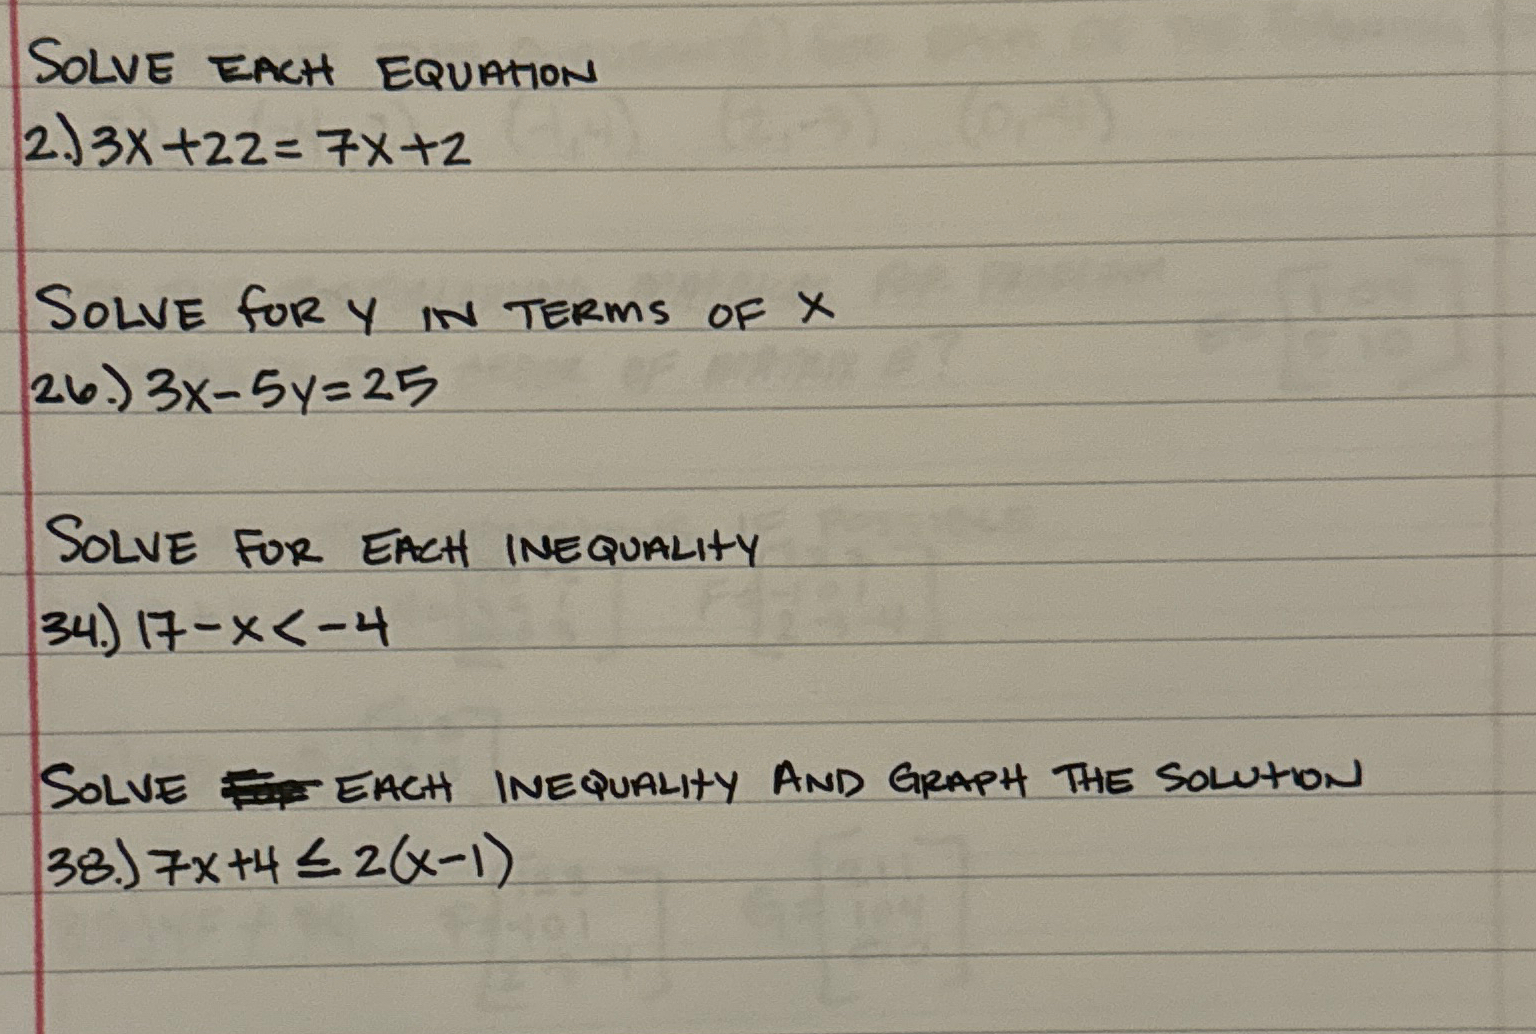 SOLVE EACH EQUATION
2.) 3x+22=7x+2
SOLVE FOR Y IN TERMS OF X
26.) 3x-5y=25
SOLVE FOR EACH INEQUALITY
34.) 17-x<-4
SOLVE EACH INEQUALITY AND GRAPH THE SOLUTION
38.) 7x+4≤2(x-1)